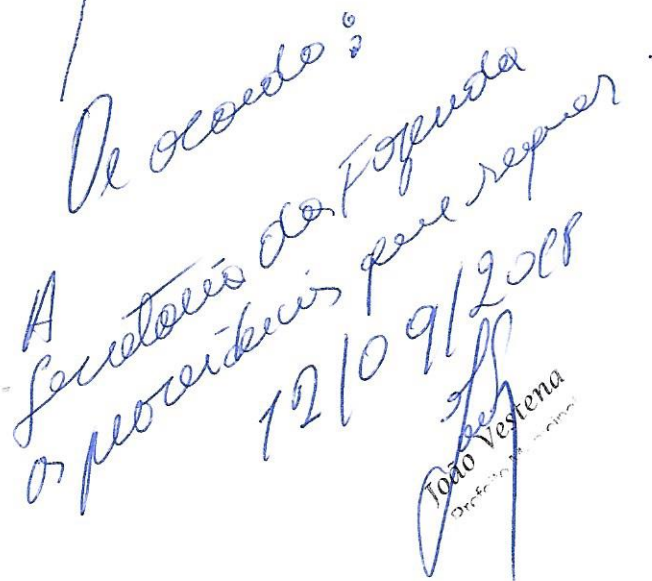 De acordo:
A
Secretaria da Fazenda
as providencias que requer
12/09/2018
João Vestena
Prefeito Municipal